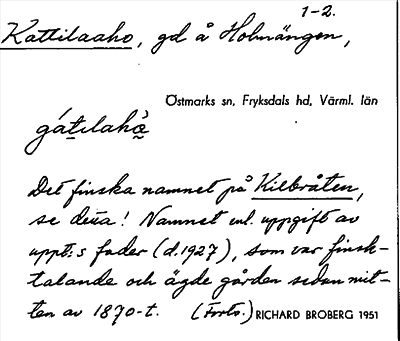 1-2.
Kattilaaho, gd å Holmängen,
Östmarks sn, Fryksdals hd, Värml. län
Det finska namnet på Kilbråten,
se detta! Namnet enl. uppgift av
uppt:s fader (d. 1927), som var finsk-
talande och ägde gården sedan mit-
ten av 1870-t. (Forts.) RICHARD BROBERG 1951